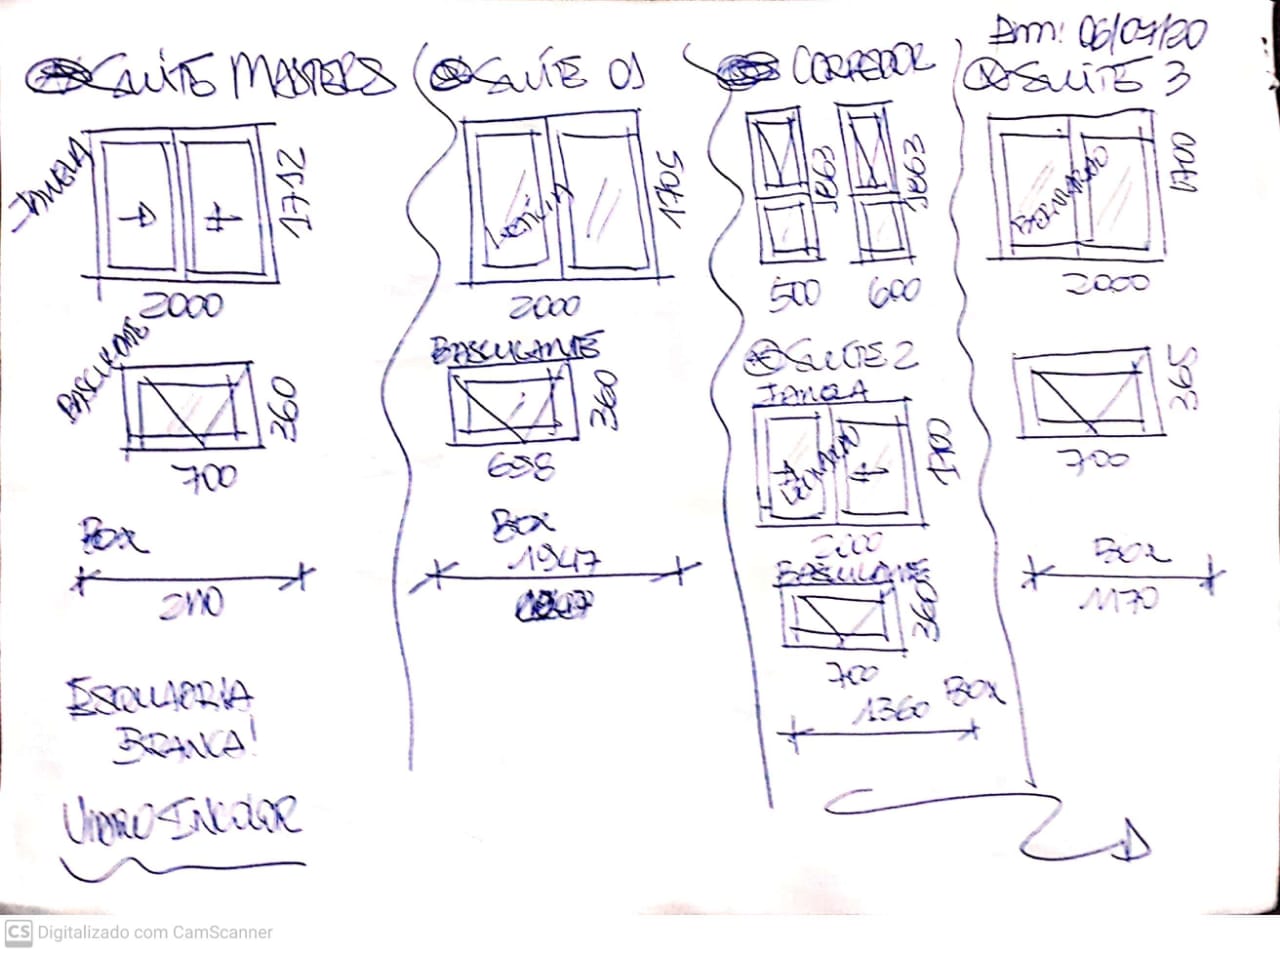 SUÍTE MASTERS
JANELA
1712
2000
BASCULANTE
360
700
BOX
ESQUADRIA
BRANCA!
VIDRO INCOLOR
SUÍTE 01
1705
2000
BASCULANTE
360
698
BOX
1947
CORREDOR
1863
1863
500
600
SUÍTE 2
JANELA
1700
2000
BASCULANTE
360
700
1360 BOX
SUITE 3
1700
2000
365
700
BOX
1170
CS Digitalizado com CamScanner